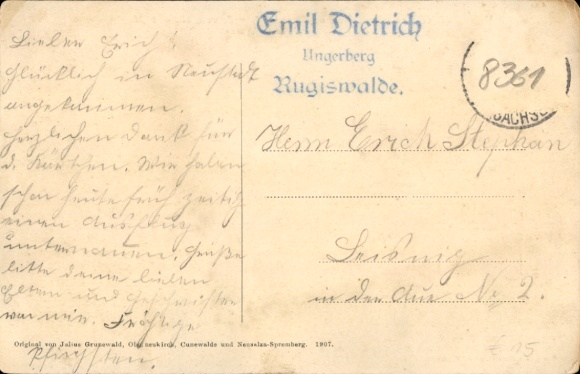 Lieber Erich!
Glücklich in Neustadt
angekommen.
Herzlichen Dank für
d. Kärtchen. Wir haben
schon heute früh zeitig
einen Ausflug
unternommen. Grüße
bitte deine lieben
Eltern und Geschwister
von mir. Fröhliche
Pfingsten.
Emil Dietrich
Ungerberg
Rugiswalde.
8361
Herrn Erich Stephan
Leisnig
in der Aue No 2.
Original von Julius Grunewald, Oberneukirch, Cunewalde und Neusalza-Spremberg. 1907.
€ 25